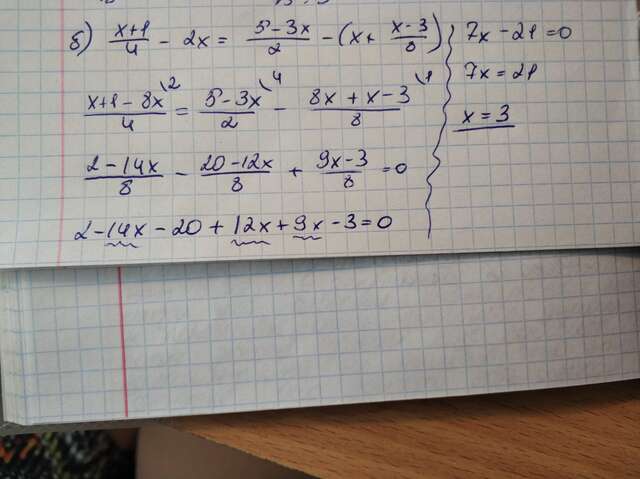 б) x+1/4 - 2x = 5-3x/2 - (x + x-3/8)
x+1-8x/4 \2 = 5-3x/2 \4 - 8x+x-3/8 \1
2-14x/8 - 20-12x/8 + 9x-3/8 = 0
2-14x-20+12x+9x-3=0
7x-21=0
7x=21
x=3